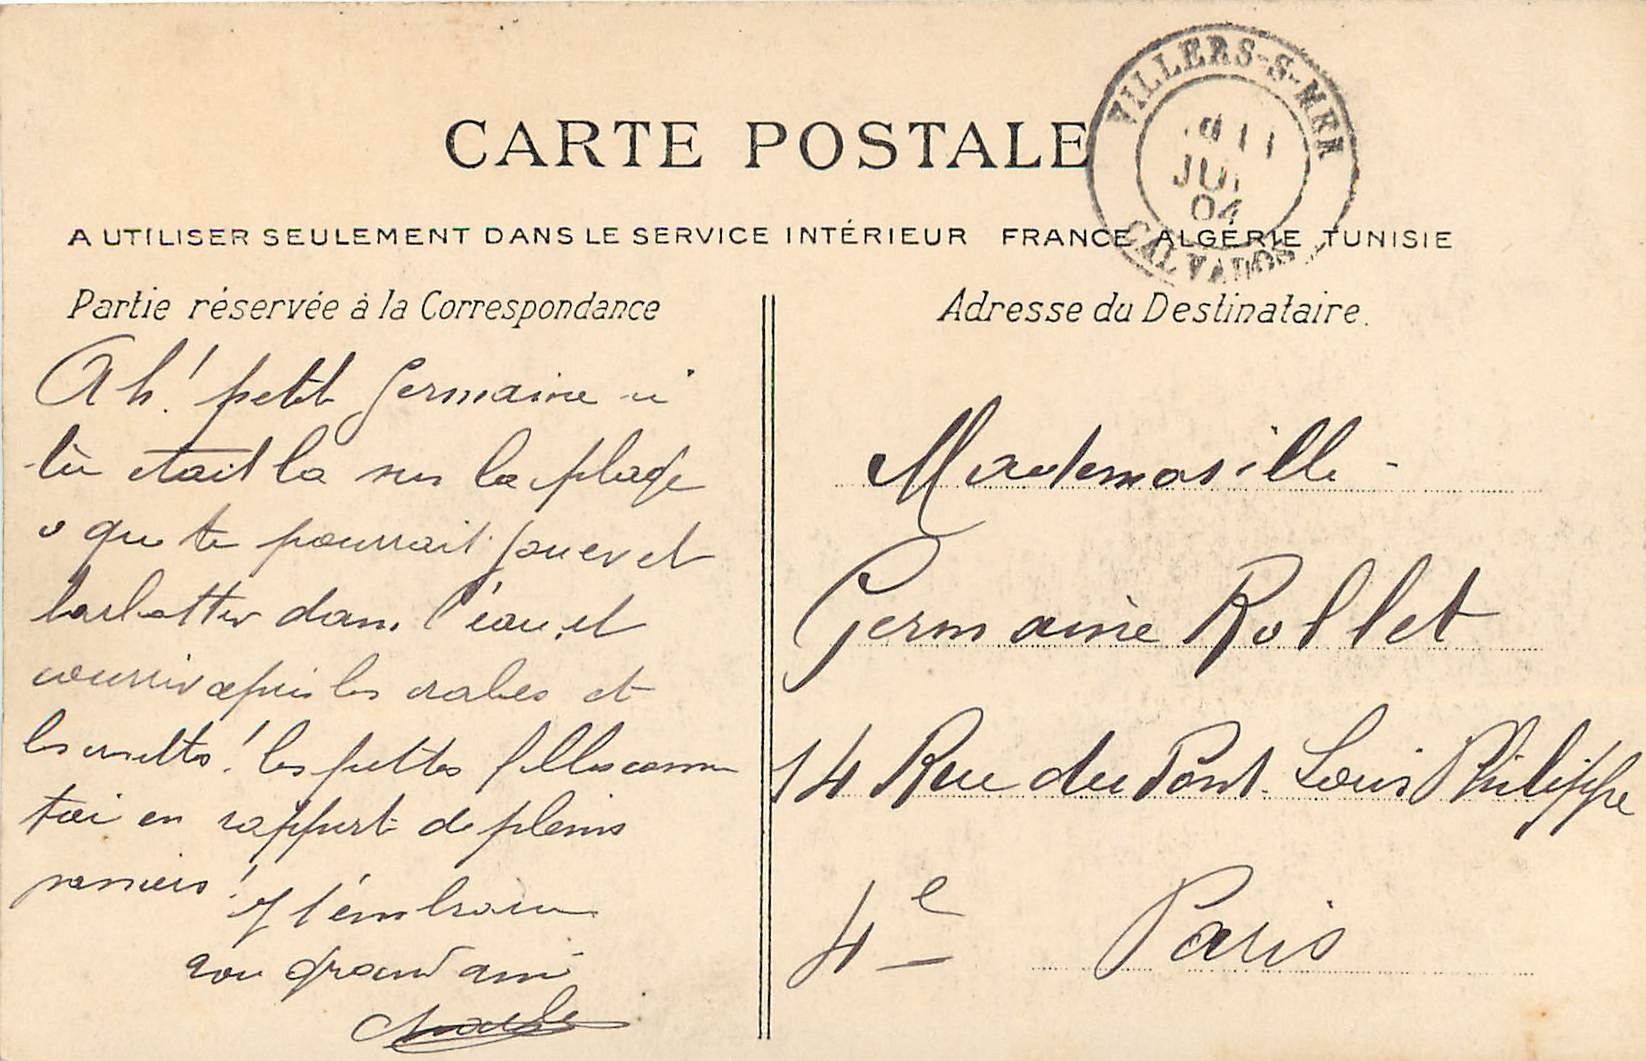 CARTE POSTALE
VILLERS-S-MER
JUI
04
CALVADOS
A UTILISER SEULEMENT DANS LE SERVICE INTÉRIEUR FRANCE ALGÉRIE TUNISIE
Partie réservée à la Correspondance
Ah! petit Germaine si
tu était là sur la plage
que tu pourrait jouer et
barbotter dans l'eau, et
courrir apris les crabes et
les crevettes! les petites filles comme
toi en rapport de pleins
paniers!
Je t'embrasse
ton grand ami
Charles
Adresse du Destinataire.
Mademoiselle
Germaine Rollet
14 Rue du Pont Louis Philippe
4e Paris